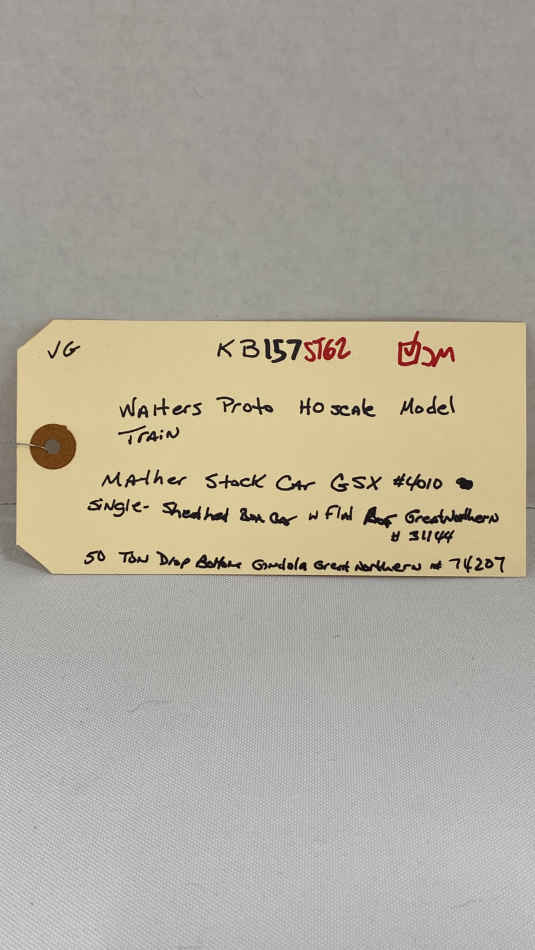 JG KB157ST62 JM
Walters Proto HO scale Model
Train
Mather Stock Car GSX #4010
Single-Sheathed Box Car w Flat Roof Great Northern
# 31144
50 Ton Drop Bottom Gondola Great Northern # 74207